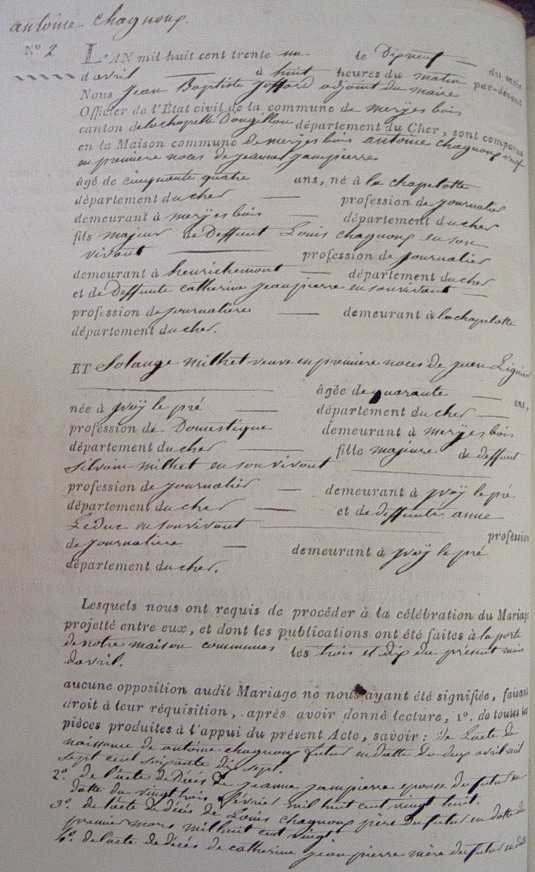 antoine chagnoux.
N° 2 L'AN mil-huit cent trente un le Dixneuf du mois
d'avril à huit heures du matin par-devant
Nous Jean Baptiste adjoint du maire
Officier de l'État civil de la commune de meryes bois
canton de la chapelle Dangillon département du Cher, sont comparus
en la Maison commune de meryes bois antoine chagnoux veuf
en premiere noces de jeanne janpierre
âgé de cinquante quatre ans, né à la chapelotte
département du cher profession de journalier
demeurant à meryes bois département du cher
fils majeur de Deffunt Louis chagnoux en son
vivant profession de journalier
demeurant à henrichemont département du cher
et de Deffunte catherine jeanpierre en son vivant
profession de journaliere demeurant à la chapelotte
département du cher.
ET Solange milhet veuve en premiere noces de jean
âgée de quarante ans,
née à yvoÿ le pré département du cher
profession de Domestique demeurant à meryes bois
département du cher fille majeure de deffunt
Silvain milhet en son vivant
profession de journalier demeurant à yvoÿ le pré
département du cher et de deffunte anne
Leduc en son vivant profession
de journaliere demeurant à yvoÿ le pré
département du cher.
Lesquels nous ont requis de procéder à la célébration du Mariage
projetté entre eux, et dont les publications ont été faites à la porte
de notre maison commune les trois et dix du présent mois
d'avril.
aucune opposition audit Mariage ne nous ayant été signifiée, faisant
droit à leur réquisition, après avoir donné lecture, 1°. de toutes les
pièces produites à l'appui du présent Acte, savoir: de l'acte de
naissance de antoine chagnoux futur en datte du deux avril mil
sept cent soixante dix sept.
2°. de l'acte de Décès de jeanne janpierre epouse du futur en
datte du vingt trois février mil huit cent vingt huit.
3°. de l'acte de décés de Louis chagnoux père du futur en datte du
premier mars mil huit cent vingt
4°. de l'acte de décés de catherine jeanpierre mère du futur en datte